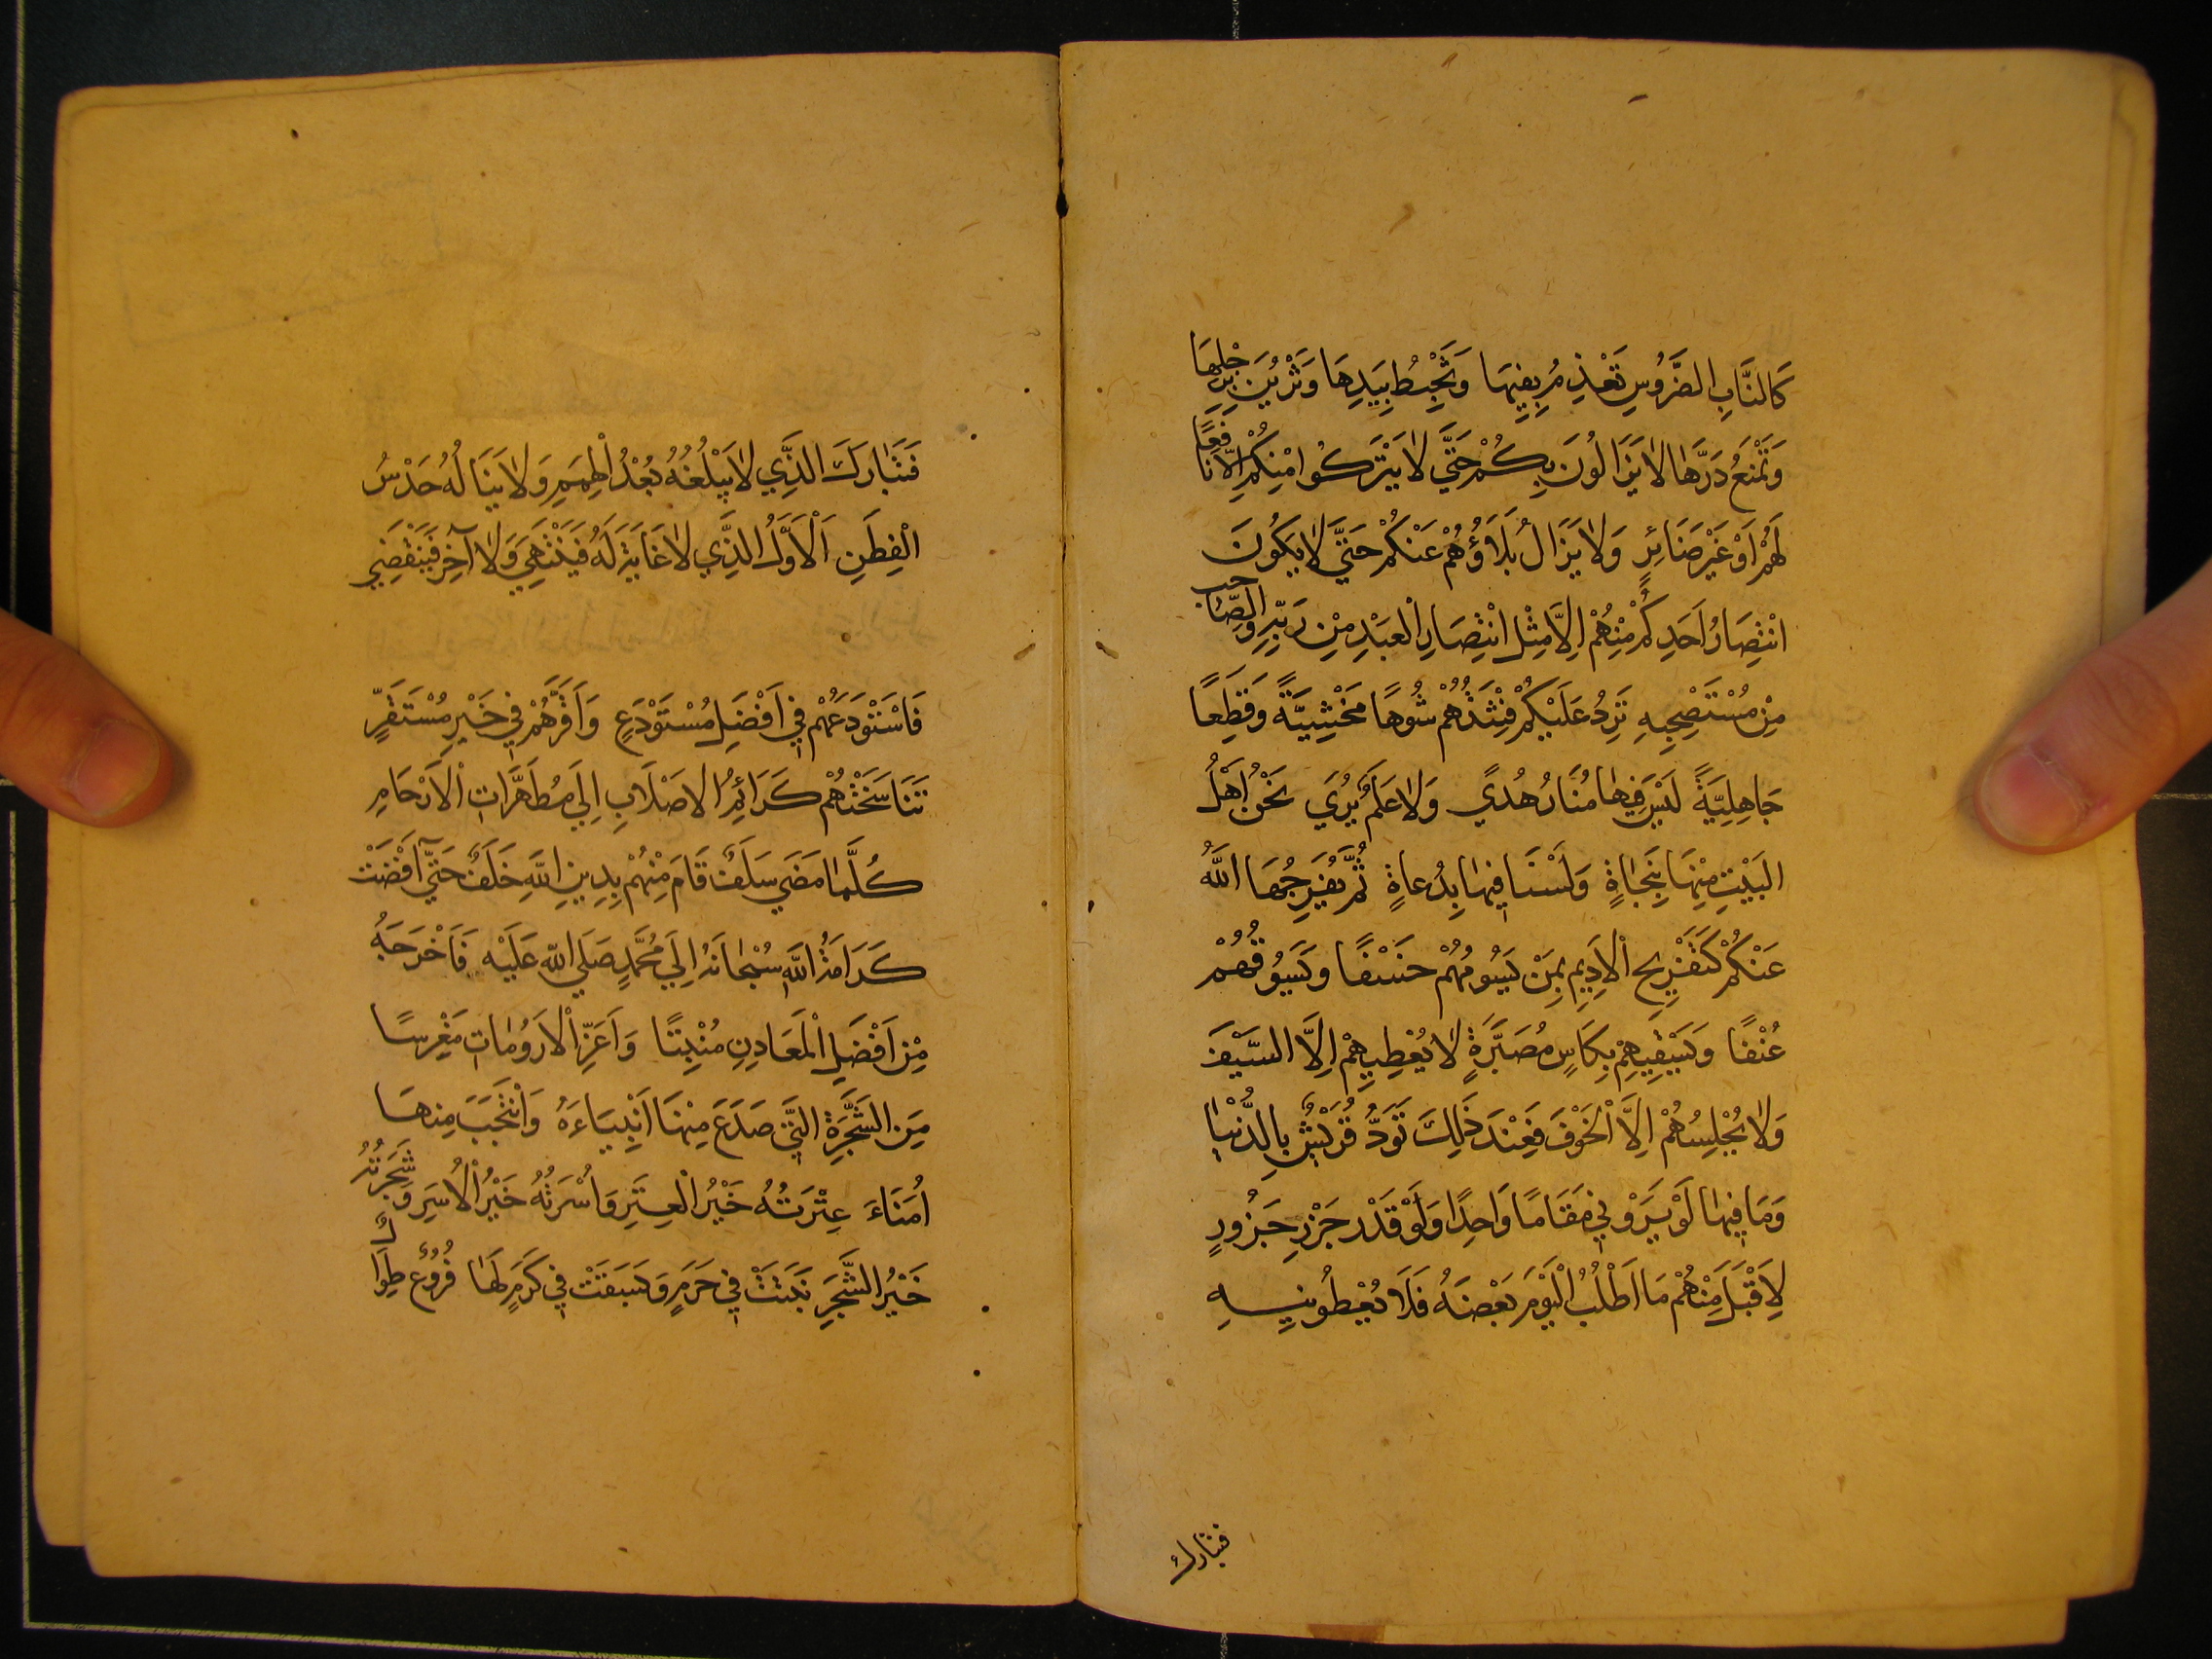 كَالنَّابِ الضَّرُوسِ تَعْذِمُ بِفِيهَا وَتَخْبِطُ بِيَدِهَا وَتَزْبِنُ بِرِجْلِهَا
وَتَمْنَعُ دَرَّهَا لَا يَزَالُونَ بِكُمْ حَتَّي لَا يَتْرُكُوا مِنْكُمْ اِلَّا نَافِعًا
لَهُمْ اَوْ غَيْرَ ضَائِرٍ وَلَا يَزَالُ بَلَاؤُهُمْ عَنْكُمْ حَتَّي لَا يَكُونَ
انْتِصَارُ اَحَدِكُمْ مِنْهُمْ اِلَّا مِثْلَ انْتِصَارِ الْعَبْدِ مِنْ رَبِّهِ وَالصَّاحِبِ
مِنْ مُسْتَصْحِبِهِ تَرِدُ عَلَيْكُمْ فِتْنَتُهُمْ شُوهًا مَخْشِيَّةً وَقِطَعًا
جَاهِلِيَّةً لَيْسَ فِيهَا مَنَارُ هُدًي وَلَا عَلَمٌ يُرَي نَحْنُ اَهْلُ
الْبَيْتِ مِنْهَا بِنَجَاةٍ وَلَسْنَا فِيهَا بِدُعَاةٍ ثُمَّ يُفَرِّجُهَا اللَّهُ
عَنْكُمْ كَتَفْرِيجِ الْاَدِيمِ بِمَنْ يَسُومُهُمْ خَسْفًا وَيَسُوقُهُمْ
عُنْفًا وَيَسْقِيهِمْ بِكَاْسٍ مُصَبَّرَةٍ لَا يُعْطِيهِمْ اِلَّا السَّيْفَ
وَلَا يُحْلِسُهُمْ اِلَّا الْخَوْفَ فَعِنْدَ ذَلِكَ تَوَدُّ قُرَيْشٌ بِالدُّنْيَا
وَمَا فِيهَا لَوْ يَرَوْنِي مَقَامًا وَاحِدًا وَلَوْ قَدْرَ جَزْرِ جَزُورٍ
لِاَقْبَلَ مِنْهُمْ مَا اَطْلُبُ الْيَوْمَ بَعْضَهُ فَلَا يُعْطُونِيهِ
فتبارك
فَتَبَارَكَ الَّذِي لَا يَبْلُغُهُ بُعْدُ الْهِمَمِ وَلَا يَنَالُهُ حَدْسُ
الْفِطَنِ اَلْاَوَّلُ الَّذِي لَا غَايَةَ لَهُ فَيَنْتَهِي وَلَا آخِرَ فَيَنْقَضِي
فَاسْتَوْدَعَهُمْ فِي اَفْضَلِ مُسْتَوْدَعٍ وَاَقَرَّهُمْ فِي خَيْرِ مُسْتَقَرٍّ
تَنَاسَخَتْهُمْ كَرَائِمُ الْاَصْلَابِ اِلَي مُطَهَّرَاتِ الْاَرْحَامِ
كُلَّمَا مَضَي سَلَفٌ قَامَ مِنْهُمْ بِدِينِ اللَّهِ خَلَفٌ حَتَّي اَفْضَتْ
كَرَامَةُ اللَّهِ سُبْحَانَهُ اِلَي مُحَمَّدٍ صَلَي اللّهِ عَلَيْهِ فَاَخْرَجَهُ
مِنْ اَفْضَلِ الْمَعَادِنِ مَنْبِتًا وَاَعَزِّ الْاَرُومَاتِ مَغْرِسًا
مِنَ الشَّجَرَةِ الَّتِي صَدَعَ مِنْهَا اَنْبِيَاءَهُ وَانْتَجَبَ مِنهَا
اُمَنَاءَ عِتْرَتُهُ خَيْرُ الْعِتَرِ وَاُسْرَتُهُ خَيْرُ الْاُسَرِ وَشَجَرَتُهُ
خَيْرُ الشَّجَرِ نَبَتَتْ فِي حَرَمٍ وَبَسَقَتْ فِي كَرَمٍ لَهَا فُرُوعٌ طِوَالٌ